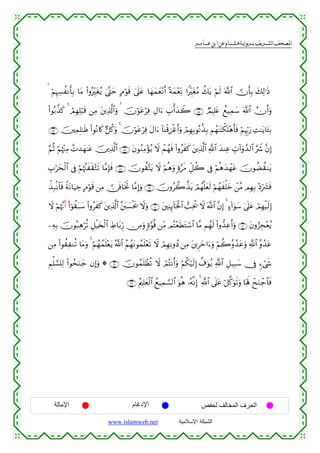 المصحف الشريف برواية هشام عن ابن عامر
ذَٰلِكَ بِأَنَّ ٱللَّهَ لَمْ يَكُ مُغَيِّرًا نِّعْمَةً أَنْعَمَهَا عَلَىٰ قَوْمٍ حَتَّىٰ يُغَيِّرُواْ مَا بِأَنفُسِهِمْ
وَأَنَّ ٱللَّهَ سَمِيعٌ عَلِيمٌ كَدَأْبِ ءَالِ فِرْعَوْنَ وَٱلَّذِينَ مِن قَبْلِهِمْ كَذَّبُواْ
بِـَٔايَٰتِ رَبِّهِمْ فَأَهْلَكْنَٰهُم بِذُنُوبِهِمْ وَأَغْرَقْنَآ ءَالَ فِرْعَوْنَ وَكُلٌّ كَانُواْ ظَٰلِمِينَ
إِنَّ شَرَّ ٱلدَّوَآبِّ عِندَ ٱللَّهِ ٱلَّذِينَ كَفَرُواْ فَهُمْ لَا يُؤْمِنُونَ ٱلَّذِينَ عَٰهَدتَّ مِنْهُمْ ثُمَّ
يَنقُضُونَ عَهْدَهُمْ فِي كُلِّ مَرَّةٍ وَهُمْ لَا يَتَّقُونَ فَإِمَّا تَثْقَفَنَّهُمْ فِي ٱلْحَرْبِ
فَشَرِّدْ بِهِم مَّنْ خَلْفَهُمْ لَعَلَّهُمْ يَذَّكَّرُونَ وَإِمَّا تَخَافَنَّ مِن قَوْمٍ خِيَانَةً فَٱنۢبِذْ
إِلَيْهِمْ عَلَىٰ سَوَآءٍ إِنَّ ٱللَّهَ لَا يُحِبُّ ٱلْخَآئِنِينَ وَلَا تَحْسَبَنَّ ٱلَّذِينَ كَفَرُواْ سَبَقُوٓاْ أَنَّهُمْ لَا
يُعْجِزُونَ وَأَعِدُّواْ لَهُم مَّا ٱسْتَطَعْتُم مِّن قُوَّةٍ وَمِن رِّبَاطِ ٱلْخَيْلِ تُرْهِبُونَ بِهِۦ
عَدُوَّ ٱللَّهِ وَعَدُوَّكُمْ وَءَاخَرِينَ مِن دُونِهِمْ لَا تَعْلَمُونَهُمُ ٱللَّهُ يَعْلَمُهُمْ وَمَا تُنفِقُواْ مِن
شَيْءٍ فِي سَبِيلِ ٱللَّهِ يُوَفَّ إِلَيْكُمْ وَأَنتُمْ لَا تُظْلَمُونَ وَإِن جَنَحُواْ لِلسَّلْمِ
فَٱجْنَحْ لَهَا وَتَوَكَّلْ عَلَى ٱللَّهِ إِنَّهُۥ هُوَ ٱلسَّمِيعُ ٱلْعَلِيمُ
الحرف المخالف لحفص الإدغام الإمالة
الشبكة الإسلامية www.islamweb.net